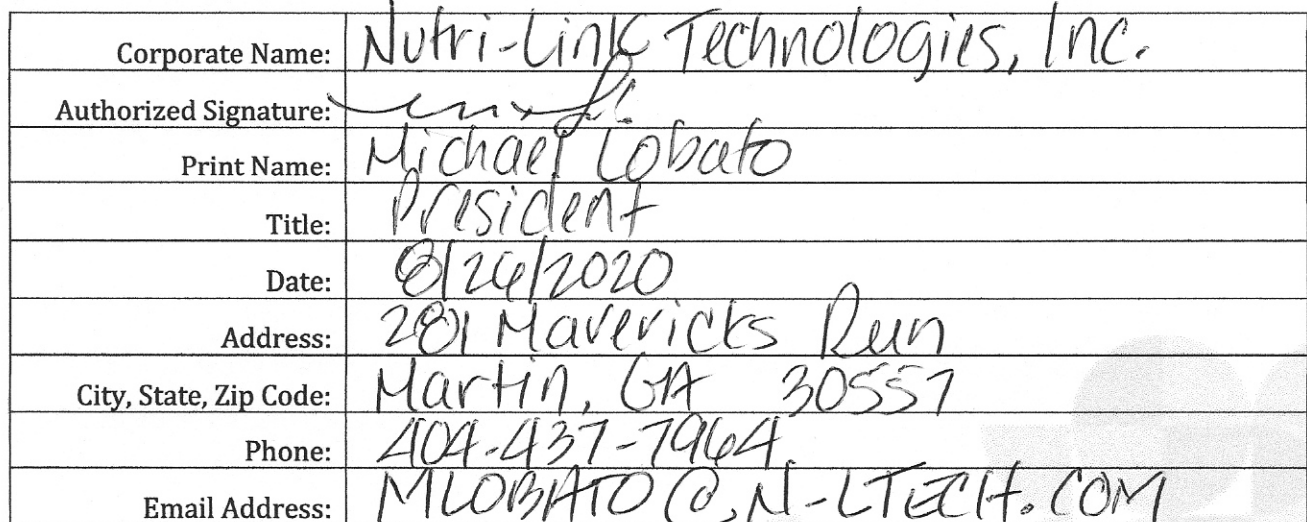 Corporate Name: Nutri-Link Technologies, Inc.
Authorized Signature:
Print Name: Michael Lobato
Title: President
Date: 8/26/2020
Address: 281 Mavericks Run
City, State, Zip Code: Martin, GA 30557
Phone: 404-437-7964
Email Address: MLOBATO@N-LTECH.COM